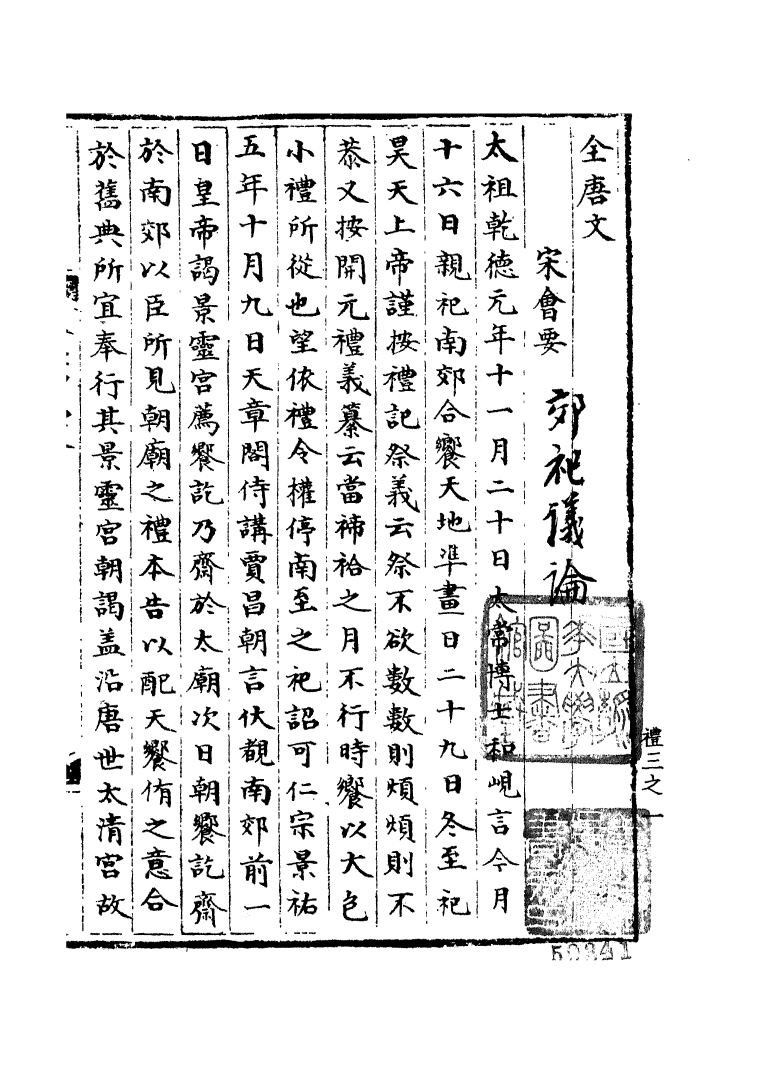 全唐文
宋會要
郊祀議論
太祖乾德元年十一月二十日太常博士和峴言今月
十六日親祀南郊合饗天地準畫日二十九日冬至祀
昊天上帝謹按禮記祭義云祭不欲數數則煩煩則不
恭又按開元禮義纂云當禘祫之月不行時饗以大包
小禮所從也望依禮令權停南至之祀詔可仁宗景祐
五年十月九日天章閣侍講賈昌朝言伏覩南郊前一
日皇帝謁景靈宮薦饗訖乃齋於太廟次日朝饗訖齋
於南郊以臣所見朝廟之禮本告以配天饗侑之意合
於舊典所宜奉行其景靈宮朝謁盖沿唐世太清宮故
禮三之一
50341